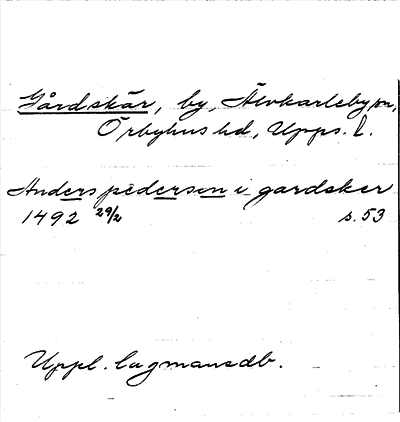 Gårdskär, by, Älvkarleby sn,
Örbyhus hd, Upps. l.
Anders pederson i gardsker
1492 29/2 s. 53
Uppl. lagmansdb.